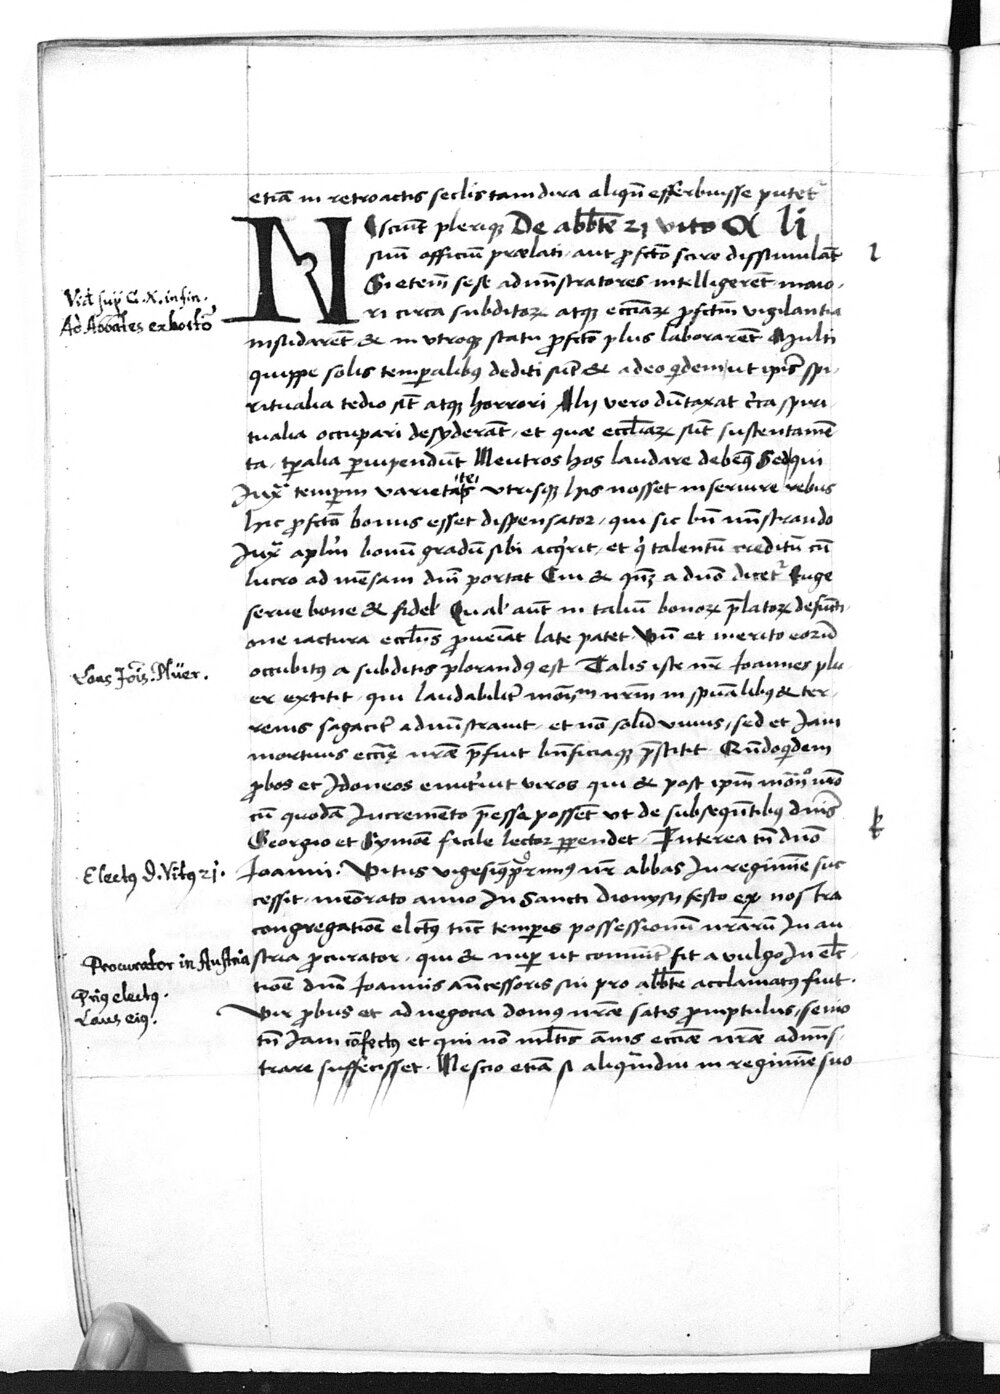 etiā in retroactis seclis tam dira aliqñ efferbuisse putet᷑
Nesciūt pleriqꝫ De abb̄te 21 vito Ca li
suū officiū prælati, aut ꝓfc̄to scire dissimulāt
Si etem̄ sese admn̄stratores intelligerēt maio,
ri circa subditoꝝ atqꝫ eccīaꝝ ꝓfctm̄ vigilantia
insudarēt & in vtroqꝫ statu ꝓfc̄to plus laborarēt Multi
quippe solis temꝑalibus dediti sūt & adeo qͥdem ut ipīs spi,
ritualia tedio sīt atqꝫ horrori Alij vero dūtaxat cͥca spiri
tualia occupari desyderāt, et quæ eccliaꝝ sūt sustentamē
ta, tꝑalia ꝑuipendūt Neutros hos laudare debeꝰ Sed qui
Juxͣ temꝑm varietatē vtrisqꝫ his nosset inseruire rebus
hic ꝓfcto bonus esset dispensator, qui sic bn̄ mn̄strando
Juxͣ aplm̄ bonū gradū sibi acqͥrit, et qͥ talentū creditū cū
lucro ad mēsam dnī portat Cui & qn̄qꝫ a dn̄o dicet᷑ Euge
serue bone & fidel̄ Qual̄ aūt in taliū bonoꝝ p̄latoꝝ defūcti,
one iactura eccliīs ꝓueiat late patet Vn̄ et merito eorū
occubitꝰ a subditis plorandꝰ est Talis iste nr̄ Joannes plu
er extitit, qui laudabilit᷑ monm̄ nrm̄ in spūalibꝰ & ter,
renis sagacit᷑ admn̄strauit, et nō solū viuus, sed et Jam
mortuus eccīę nr̄æ p̄fuit bn̄ficiaqꝫ p̄stitit Qn̄doqͥdem
ꝓbos et Jdoneos enutͥuit viros qui & post ipm̄ mon̄o nr̄o
cū quodā Jncremento p̄esse possēt vt de subseqn̄tibus dnīs
Georgio et Symōe facile lector ꝑpendet, Jnterea tn̄ dn̄o
Joanni. Vitus vigesiqͣprimꝰ nr̄ abbas Jn regimīe suc
cessit, meōrato anno Jn Sancti dionysii festo ex nostra
congregatiōe elctꝰ tūc temporis possessionū nr̄arū Jn au
stria ꝓcurator, qui & nuꝑ ut comūit᷑ fit a vulgo Jn elc̄
tiōe dnī Joannis an̄cessoris sui pro abb̄te acclamatꝰ fuit.
Vir ꝓbus et ad negocia domus nr̄æ satis ꝓmptulus, senio
tn̄ Jam cōfectꝰ et qui nō ml̄tis ānis eccīæ nr̄æ admn̄s,
trare suffecisset. Nescio etiā si aliqͣmdiu in regimīe suo
Vid sup̄ C. X. in fin.
Ad Abbates exhortō
Laus Joīs. Plüer.
Electꝰ D. Vitꝰ 21.
Procurator in Austria
Priꝰ electꝰ.
Laus eiꝰ.
l
k